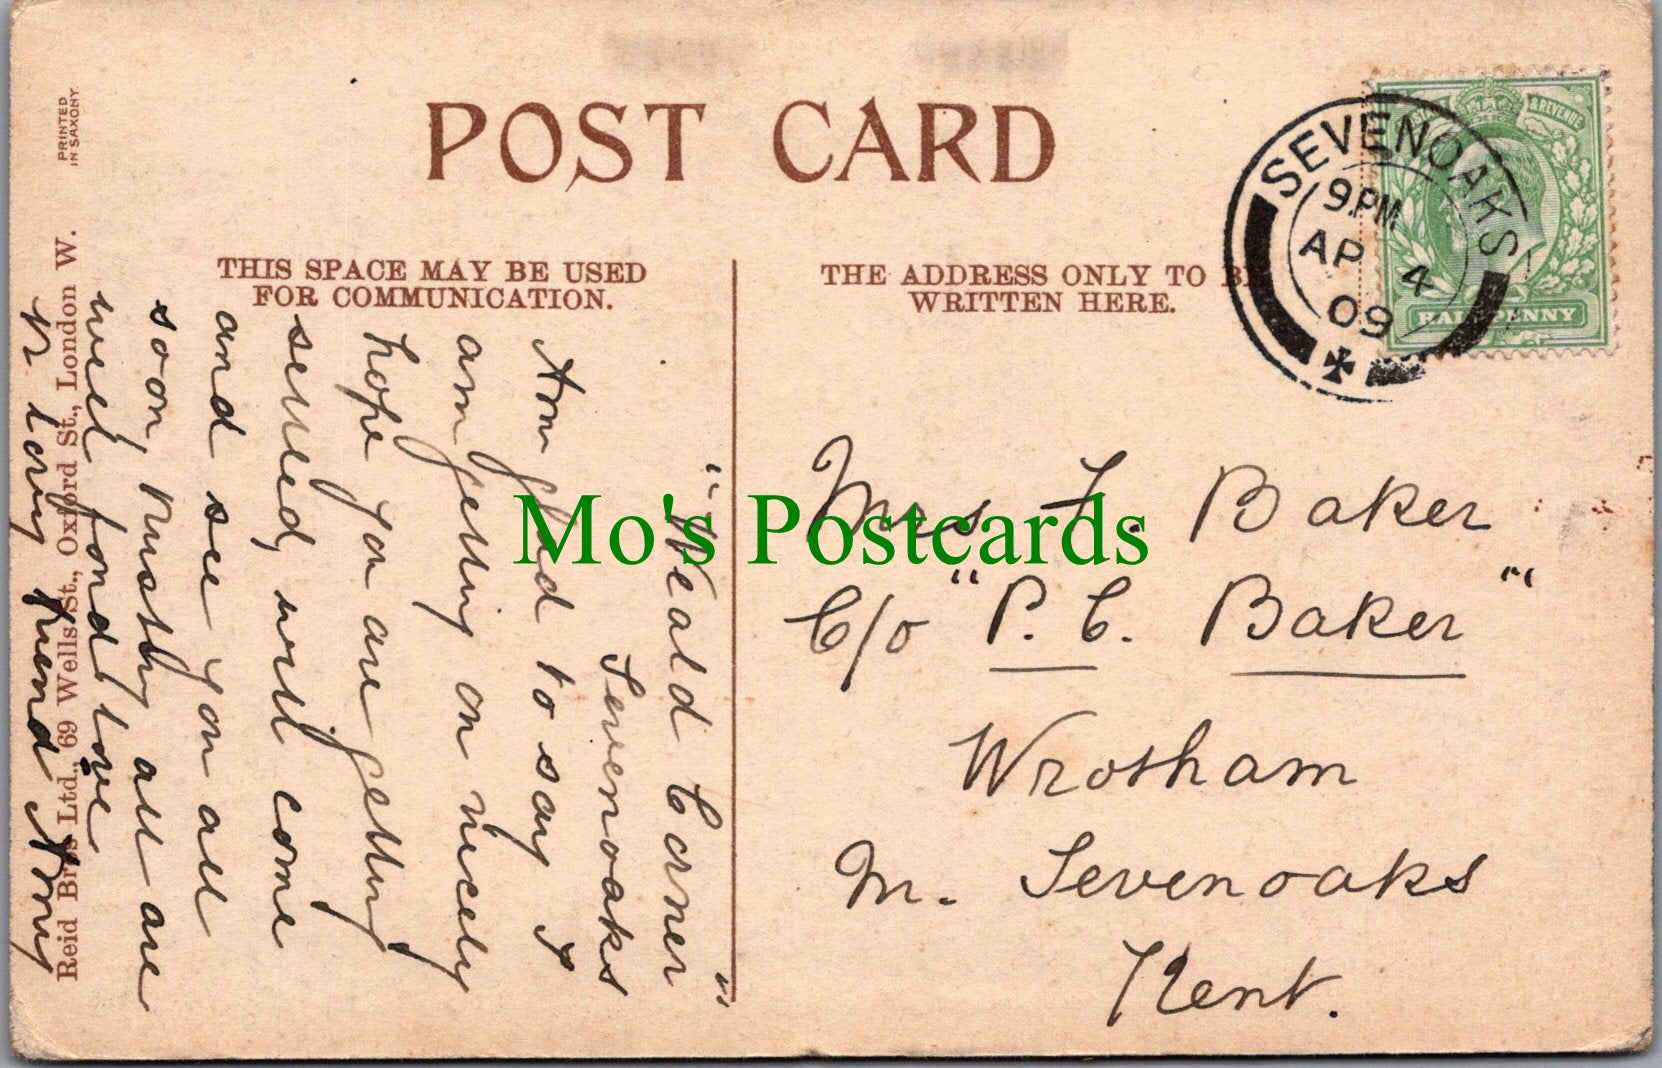 POST CARD
PRINTED
IN SAXONY.
Reid Bros Ltd., 69 Wells St., Oxford St., London W.
THIS SPACE MAY BE USED
FOR COMMUNICATION.
THE ADDRESS ONLY TO BE
WRITTEN HERE.
SEVENOAKS
9.PM
AP 4
09
& REVENUE
HALFPENNY
"Weald Corner"
Sevenoaks
Am glad to say I
am getting on nicely
hope you are getting
served, will come
and see you all
soon, trusting all are
well fond love
yr loving friend
Mrs F. Baker
C/o "P. C. Baker"
Wrotham
Nr. Sevenoaks
Kent.
Mo's Postcards